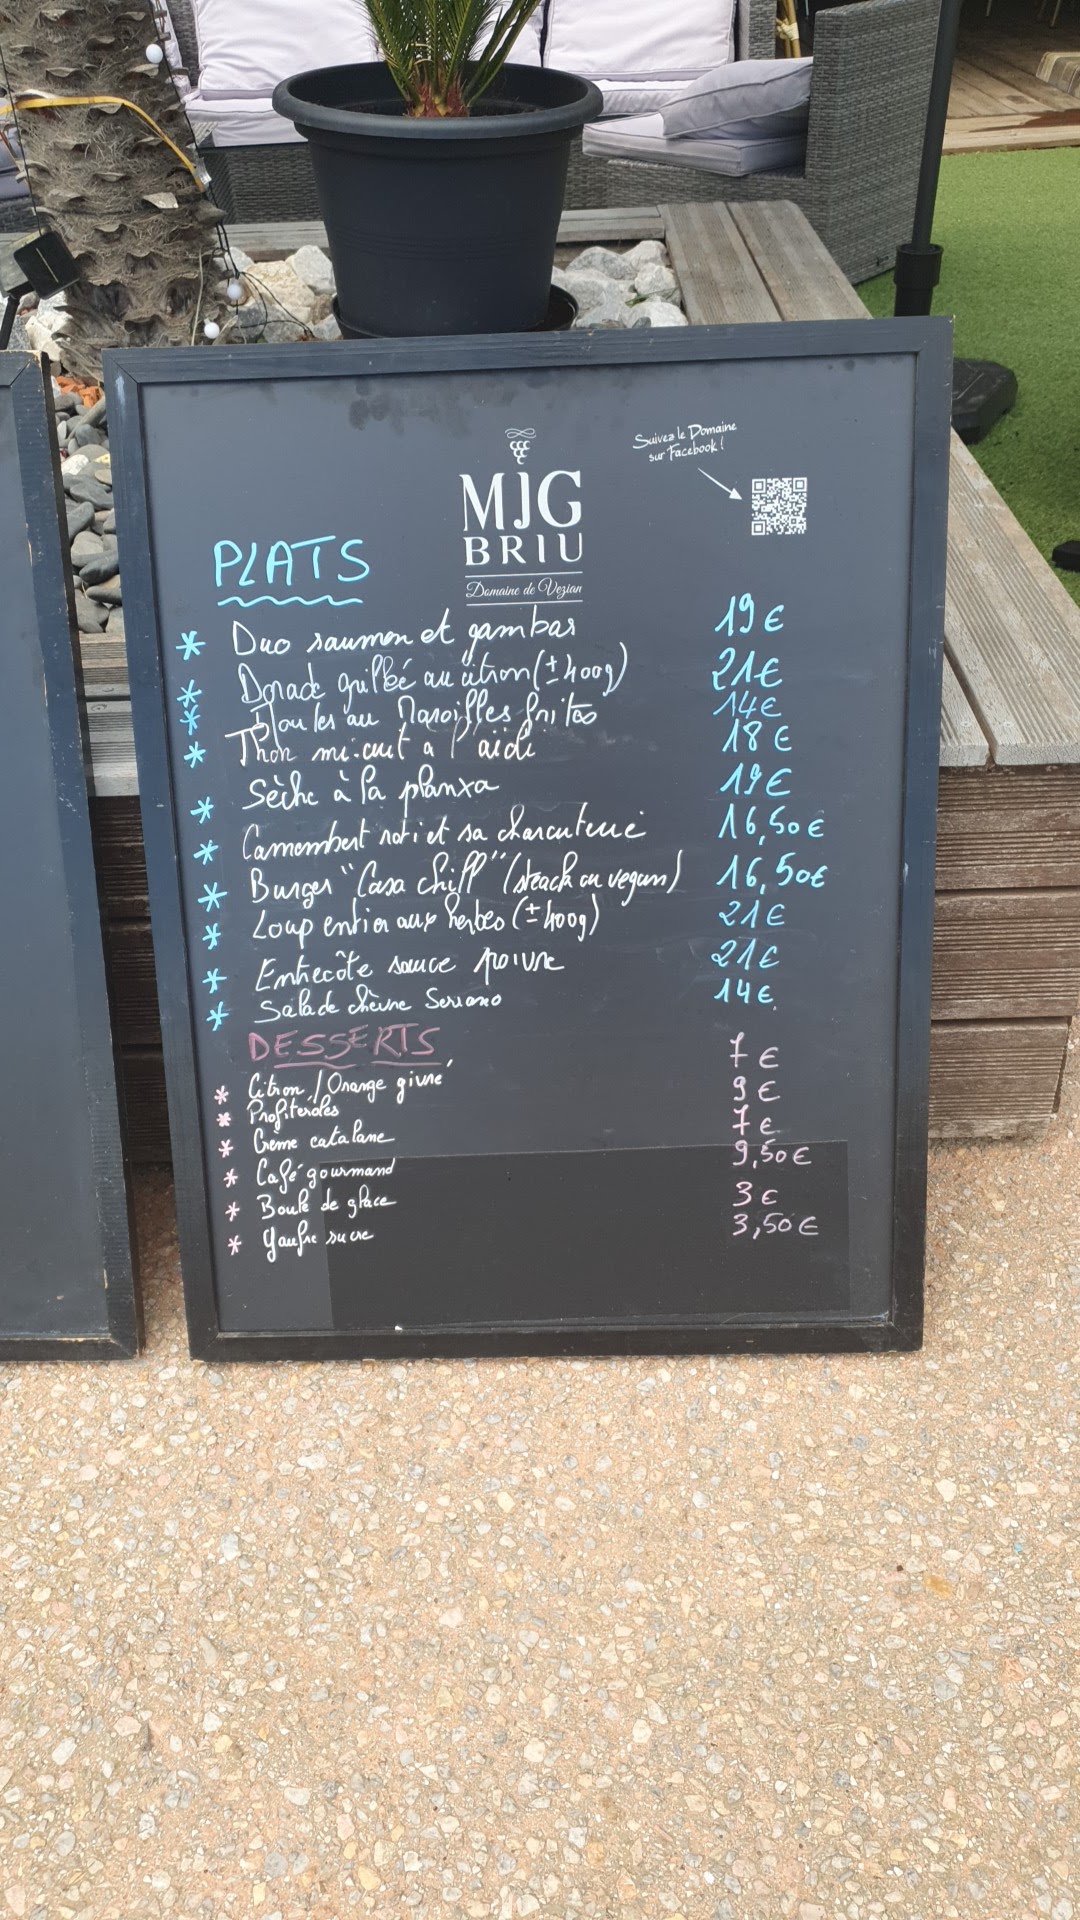 Suivez le Domaine
sur Facebook !
MJG
BRIU
Domaine de Vezian
PLATS
* Duo saumon et gambas 19€
* Dorade grillée au citron (±400g) 21€
* Moules au Maroilles frites 14€
* Thon mi-cuit à l'aïoli 18€
* Sèche à la planxa 19€
* Camembert roti et sa charcuterie 16,50€
* Burger "Casa Chill" (steack ou vegan) 16,50€
* Loup entier aux herbes (±400g) 21€
* Entrecôte sauce poivre 21€
* Salade chèvre Serrano 14€
DESSERTS
* Citron / Orange givré 7€
* Profiteroles 9€
* Crème catalane 7€
* Café gourmand 9,50€
* Boule de glace 3€
* Gaufre sucre 3,50€